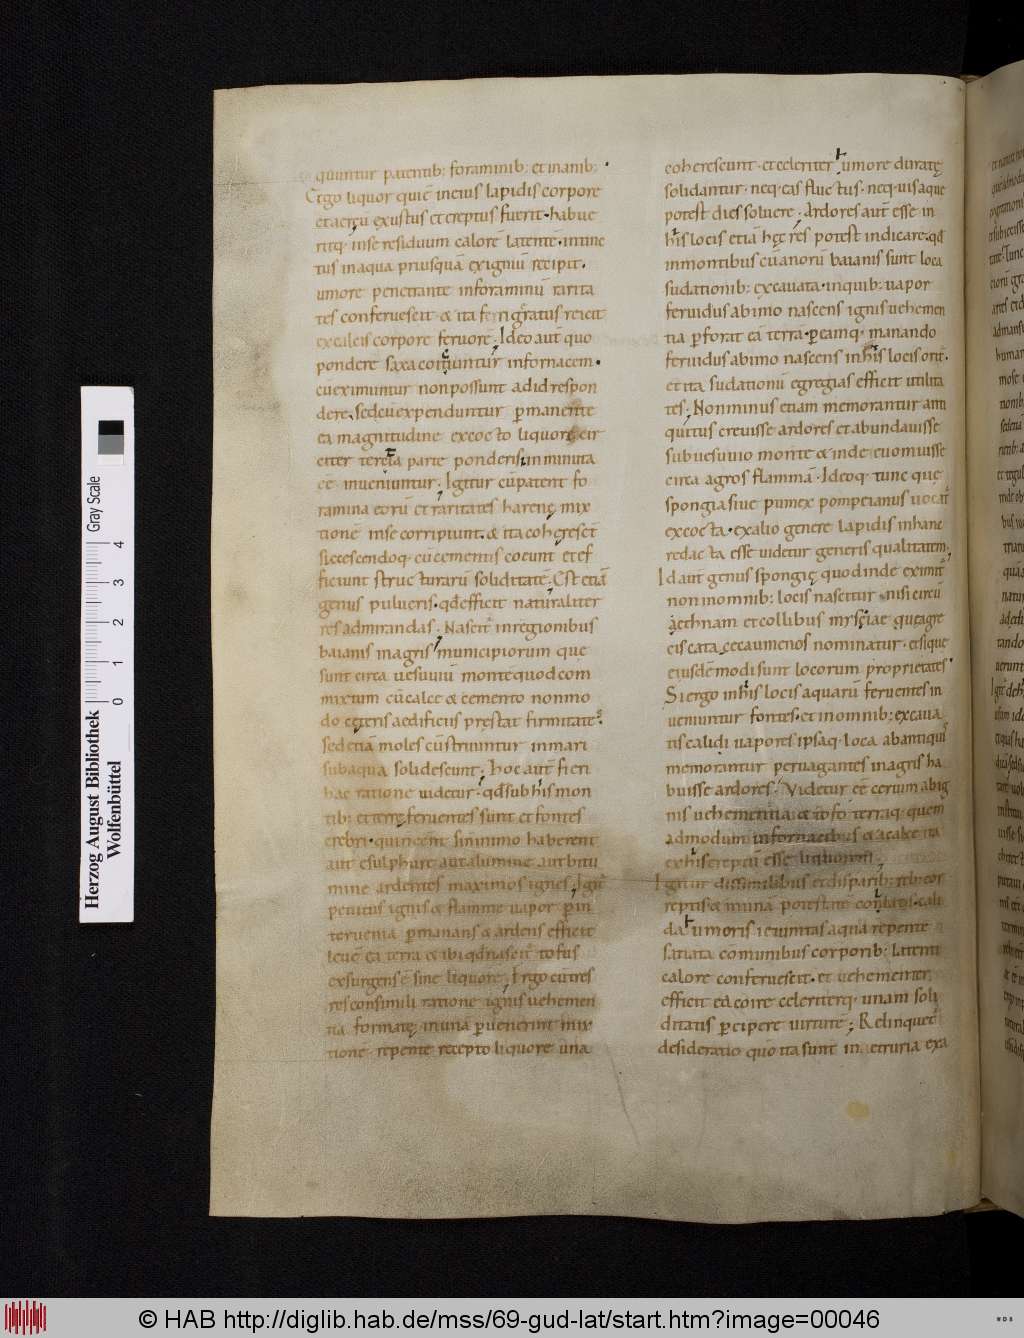 quuntur patentib; foraminib; et inanib;
Ergo liquor qui ē in eius lapidis corpore
et aer cū exustus et ereptus fuerit· habue
ritq· in se residuum calorē latentē· intinc
tus in aqua priusquā ex igni recipit·
umore penetrante in foraminū rarita
tes confervescit & ita refrigeratus reicit
ex calcis corpore fervorē· Ideo aut̄ quo
pondere saxa coiciuntur in fornacem·
cū eximuntur non possunt ad id respon
dere· sed cū expenduntur permanente
ea magnitudine excocto liquore· cir
citer tercia parte ponderis inminuta
eē inveniuntur· Igitur cū patent fo
ramina eorū et raritates harenę mix
tionē in se corripiunt· & ita coherescit
siccescendoq· cū cementis coeunt et ef
ficiunt structurarū soliditatē· Est etiā
genus pulveris· qđ efficit naturaliter
res admirandas· Nascit᷑ in regionibus
baianis in agris municipiorum que
sunt circa vesuviū monte quod com
mixtum cū calce & cemento non mo
do ceteris aedificiis pręstat firmitatē·
sed etiā moles cū struuntur in mari
sub aqua solidescunt· Hoc aut̄ fieri
hac ratione videtur· qđ sub his mon
tib; et terrę ferventes sunt et fontes
crebri· qui n̄ eēnt si in imo haberent
aut e sulphure aut alumine aut bitu
mine ardentes maximos ignes· Igit᷑
penitus ignis & flamme vapor p in
tervenia permanans & ardens efficit
levē eā terrā & ibi qđ nascit᷑ tofus
exsurgens ē sine liquore· Ergo cū tres
res consimili ratione ignis vehemen
tia formatę in unā pervenerint mix
tionē· repente recepto liquore una
coherescunt· et celeriter umore duratę
solidantur· neq· eas fluctus· neq· vis aque
potest dissolvere· Ardores aut̄ esse in
his locis etiā hęc res potest indicare· qđ
in montibus cumanorū baianis sunt loca
sudationib; excavata· in quib; vapor
fervidus ab imo nascens ignis vehemen
tia perforat eā terrā· per eamq· manando
fervidus ab imo nascens in his locis orit᷑·
et ita sudationū egregias efficit utilita
tes· Non minus etiam memorantur anti
quitus crevisse ardores et abundavisse
sub vesuvio monte & inde evomuisse
circa agros flammā· Ideoq· tunc que
spongia sive pumex pompeianus vocat᷑
excocta· ex alio genere lapidis in hanc
redacta esse videtur generis qualitatem·
Id aut̄ genus spongię quod inde eximit᷑
non in omnib; locis nascitur nisi circū
aethnam et collibus mysiae quę a gre
cis catacecaumenos nominatur· et si que
eiusdē modi sunt locorum proprietates·
Si ergo in his locis aquarū ferventes in
veniuntur fontes· et in omnib; excava
tis calidi vapores ipsaq· loca ab antiquis
memorantur pervagantes in agris ha
buisse ardores· Videtur eē certum ab ig
nis vehementia & tofo terraq· quem
admodum in fornacib; & a calce ita
ex his ereptū esse liquorem·
Igitur dissimilibus et disparib; reb; cor
reptis & in unā potestatē conlatis· cali
da umoris ieiunitas aqua repente
satiata communibus corporib; latenti
calore confervescit· et vehementer
efficit ea coire celeriterq· unam soli
ditatis percipere virtutē; Relinquet᷑
desideratio quo ita sunt in aetruria exa
Herzog August Bibliothek
Wolfenbüttel
0 1 2 3 4
Gray Scale
© HAB http://diglib.hab.de/mss/69-gud-lat/start.htm?image=00046